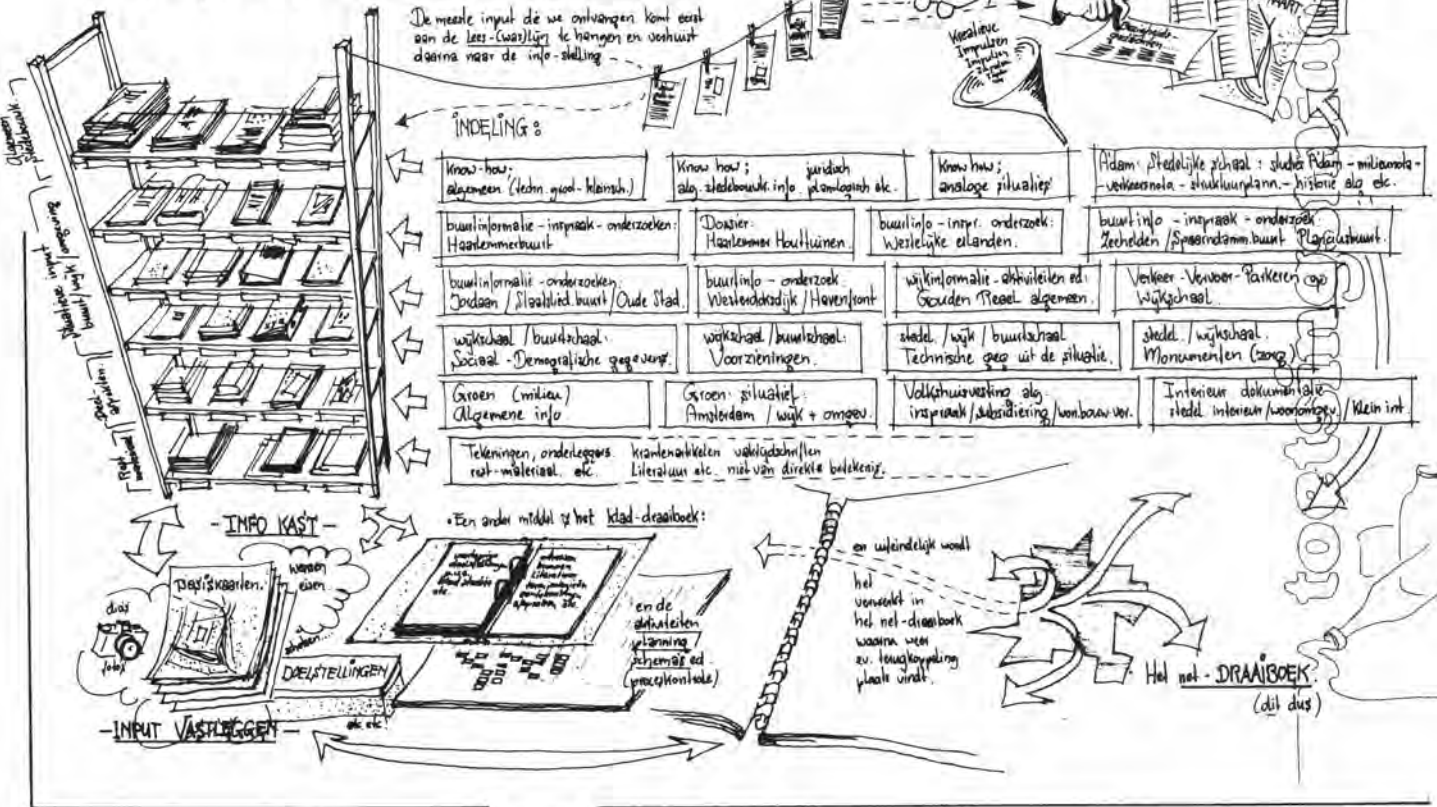 De meeste input die we ontvangen komt eerst
aan de lees-(was)lijn te hangen en verhuist
daarna naar de info-stelling
Kreatieve
Impulsen
Impulsen
INDELING:
Algemeen
Stedebouwk.
Situatieve input
buurt/wijk/omgeving
Rest
materiaal
Know-how:
algemeen (techn. groot-kleinsch.)
Know how; juridisch
alg. stedebouwk. info planologisch etc.
Know how;
analoge situaties
A'dam: Stedelijke schaal: studies A'dam - milieunota -
- verkeersnota - struktuurplann. - historie alg etc.
buurtinformatie - inspraak - onderzoeken:
Haarlemmerbuurt
Dossier:
Haarlemmer Houttuinen.
buurtinfo - inspr. onderzoek:
Westelijke eilanden.
buurtinfo - inspraak - onderzoek:
Zeehelden / Spaarndamm.buurt Planciusbuurt.
buurtinformatie - onderzoeken:
Jordaan / Staatslied.buurt / Oude Stad.
buurtinfo - onderzoek
Westerdoksdijk / Havenfront
wijkinformatie - aktiviteiten ed:
Gouden Reael algemeen.
Verkeer - Vervoer - Parkeren
Wijkschaal.
wijkschaal / buurtschaal:
Sociaal - Demografische gegevens.
wijkschaal / buurtschaal:
Voorzieningen.
stedel. / wijk / buurtschaal
Technische geg uit de situatie.
stedel. / wijkschaal.
Monumenten (zorg)
Groen (milieu)
Algemene info
Groen: situatief:
Amsterdam / wijk + omgev.
Volkshuisvesting alg.
inspraak / subsidiering / won.bouw.ver.
Interieur dokumentatie
stedel. interieur / woonomgev. / klein int.
Tekeningen, onderleggers
rest-materiaal. etc.
krantenartikelen vaktijdschriften
Literatuur etc. niet van direkte betekenis.
- INFO KAST -
• Een ander middel is het klad-draaiboek:
basiskaarten.
wensen
eisen
dias
fotos
DOELSTELLINGEN
etc etc.
- INPUT VASTLEGGEN -
en de
aktiviteiten
planning
schema's ed
(proceskontrole)
en uiteindelijk wordt
het
verwerkt in
het net-draaiboek
waarna weer
ev. terugkoppeling
plaats vindt.
Het net - DRAAIBOEK.
(dit dus)